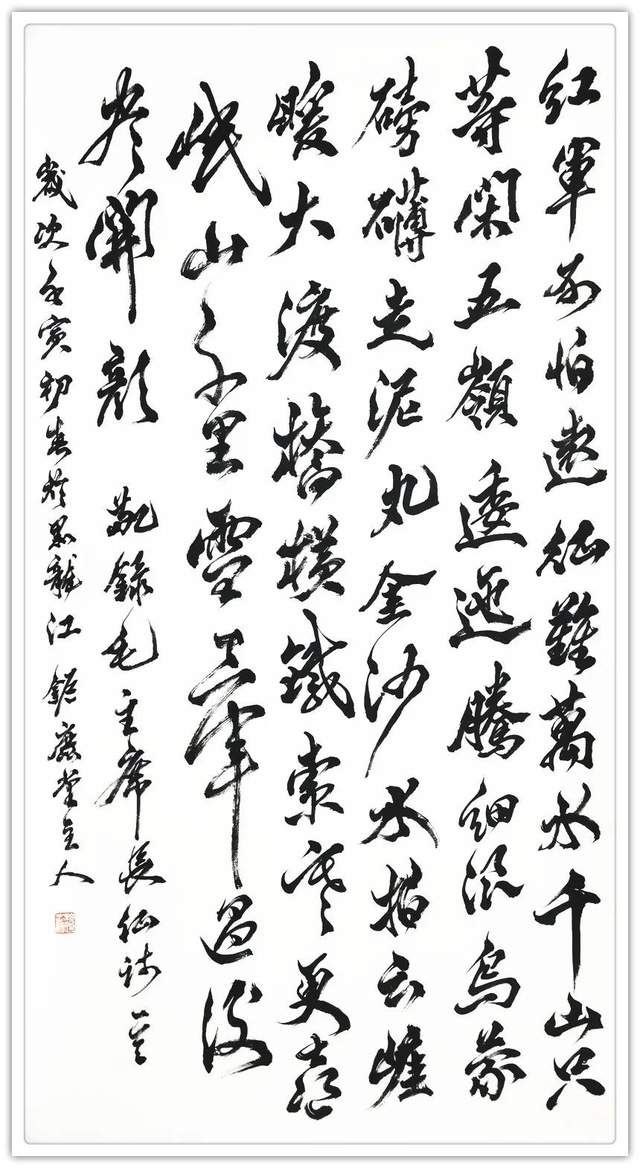 紅軍不怕遠征難萬水千山只
等閑五嶺逶迤騰細浪烏蒙
磅礴走泥丸金沙水拍云崖
暖大渡橋橫鐵索寒更喜
岷山千里雪三軍過後
盡開顏 敬錄毛主席長征詩一首
歲次壬寅初春於黑龍江 鉅鹿堂主人